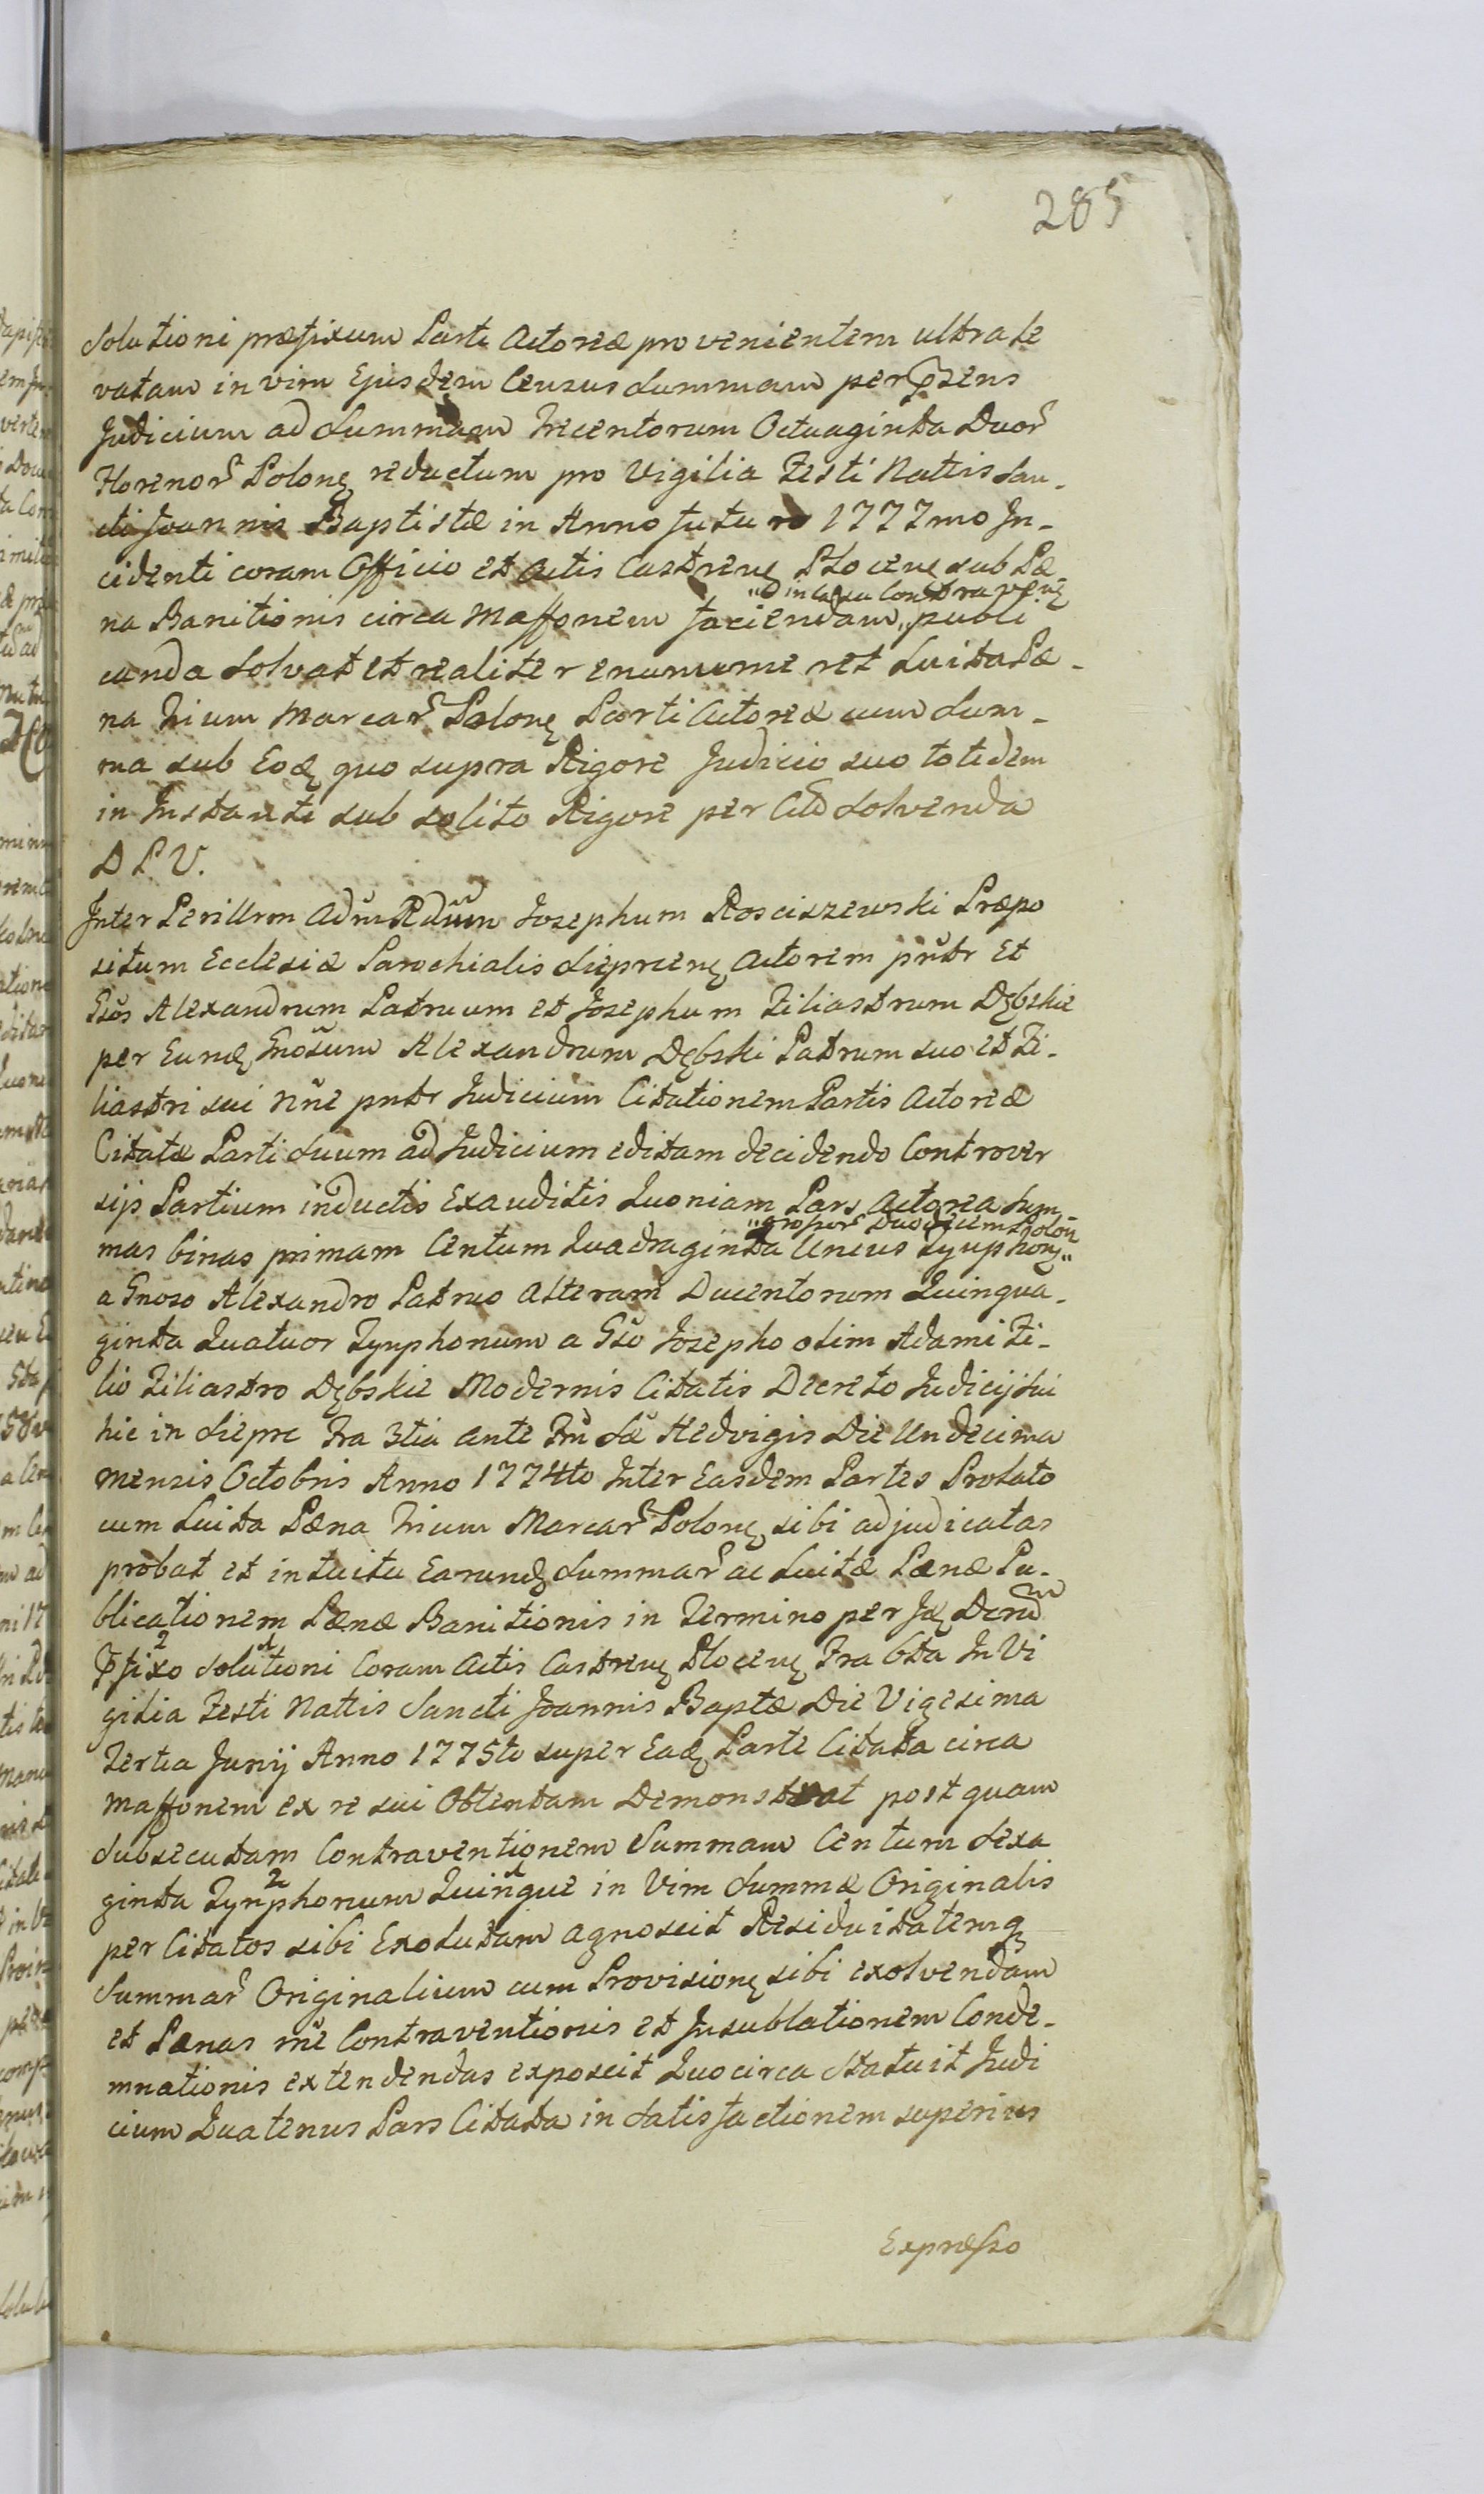 285
Solutioni præfixum Parti Actoreæ provenientem ultra le
vatam in vim Ejusdem Census Summam per p̄zens
Judicium ad Summam Trecentorum Octuaginta Duor̃
Florenor̃ Poloneȝ reductum pro Vigilia Festi Nattis San-
cti Joannis Baptistæ in Anno futuro 1777mo In-
cidenti coram Officio et Actis Castreneȝ Ploceneȝ sub Pæ-
„in Casu Contraveneȝ
na Banitionis circa Maffonem faciendam„ publi
canda solvat et realiter enumeret Luita Pæ-
na Trium Marcar̃ Poloneȝ Parti Actoreæ cum Sum-
ma sub Eodȝ quo supra Rigore Judicio suo totidem
in Instanti sub solito Rigore per Citã solvenda
D P V.
Inter Perillrem Adm̃ Rdum̃ Josephum Rosciszewski Præpo
situm Ecclesiæ Parochialis Siepreneȝ Actorem pñtr Et
Gsos Alexandrum Patruum et Josephum Filiastrum Dębskie
per Eundȝ Gnosum Alexandrum Dębski Patrum suo et Fi-
liastri sui Nñe pntr Judicium Citationem Partis Actoreæ
Citatæ Parti suum ad Judicium editam decidendo Controver
sijs Partium inductis Exauditis Quoniam Pars Actorea Sum-
„grossor̃ Duodecim Polon̄
mas binas primam Centum Quadraginta Unius Tynphoneȝ„
a Gnoso Alexandro Patruo Alteram Ducentorum Quinqua-
ginta Quatuor Tynphonum a Gso Josepho olim Adami Fi-
lio Filiastro Dębskie Modernis Citatis Decreto Judicij sui
hic in Siepre Fra 3tia ante Fm̃ Sæ Hedvigis Die Undecima
Mensis Octobris Anno 1774to Inter Easdem Partes Prolato
cum Luita Pæna Trium Marcar̃ Poloneȝ sibi adjudicatas
probat et intuitu Earundȝ Summar̃ ac Luitæ Pænæ Pu-
blicationem Pænæ Banitionis in Termino per Idȝ Dcrum̃
p̄fixo Solutioni Coram Actis Castreneȝ Ploceneȝ Fra 6ta In Vi
gilia Festi Nattis Sancti Joannis Baptæ Die Vigesima
Tertia Junij Anno 1775to super Eadȝ Parte Citata circa
Maffonem ex re sui Obtentam Demonstrat post quam
Subsecutam Contraventionem Summam Centum Sexa
ginta Tynphonum Quinque in Vim Summæ Originalis
per Citatos sibi Exolutam agnoscit Residuitatemqȝ
Summar̃ Originalium cum Provisioneȝ sibi exolvendam
et Pænas rñe Contraventionis et Insublationem Conde-
mnationis extendendas exposcit Quocirca Statuit Judi
cium Quatenus Pars Citata in Satisfactionem superius
Expresso